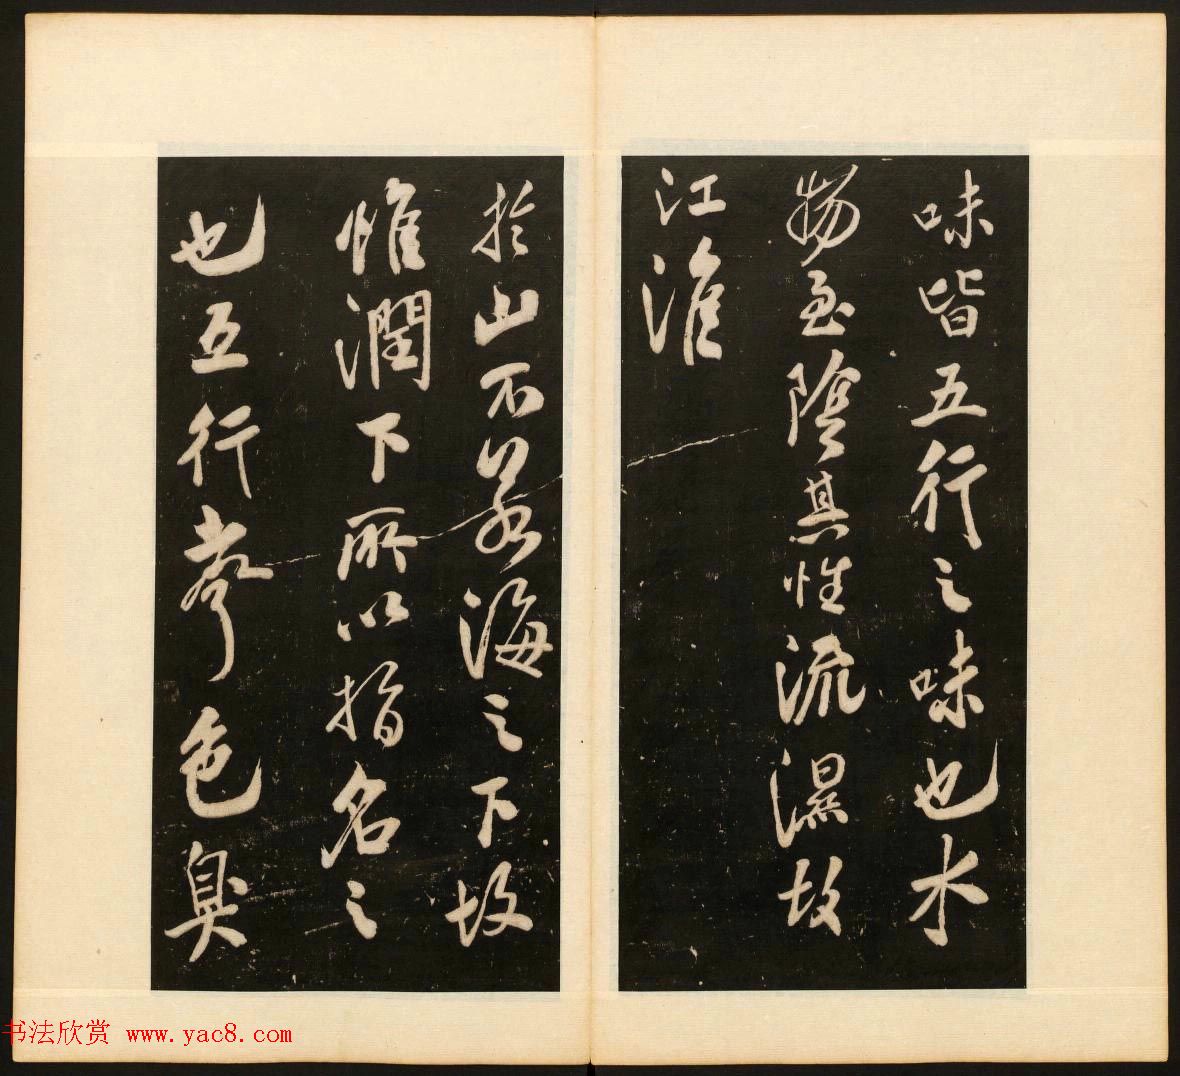 味皆五行之味也水
物至陰其性流濕故
江淮
於山不若海之下故
惟潤下所以指名之
也五行孝色臭
书法欣赏 www.yac8.com